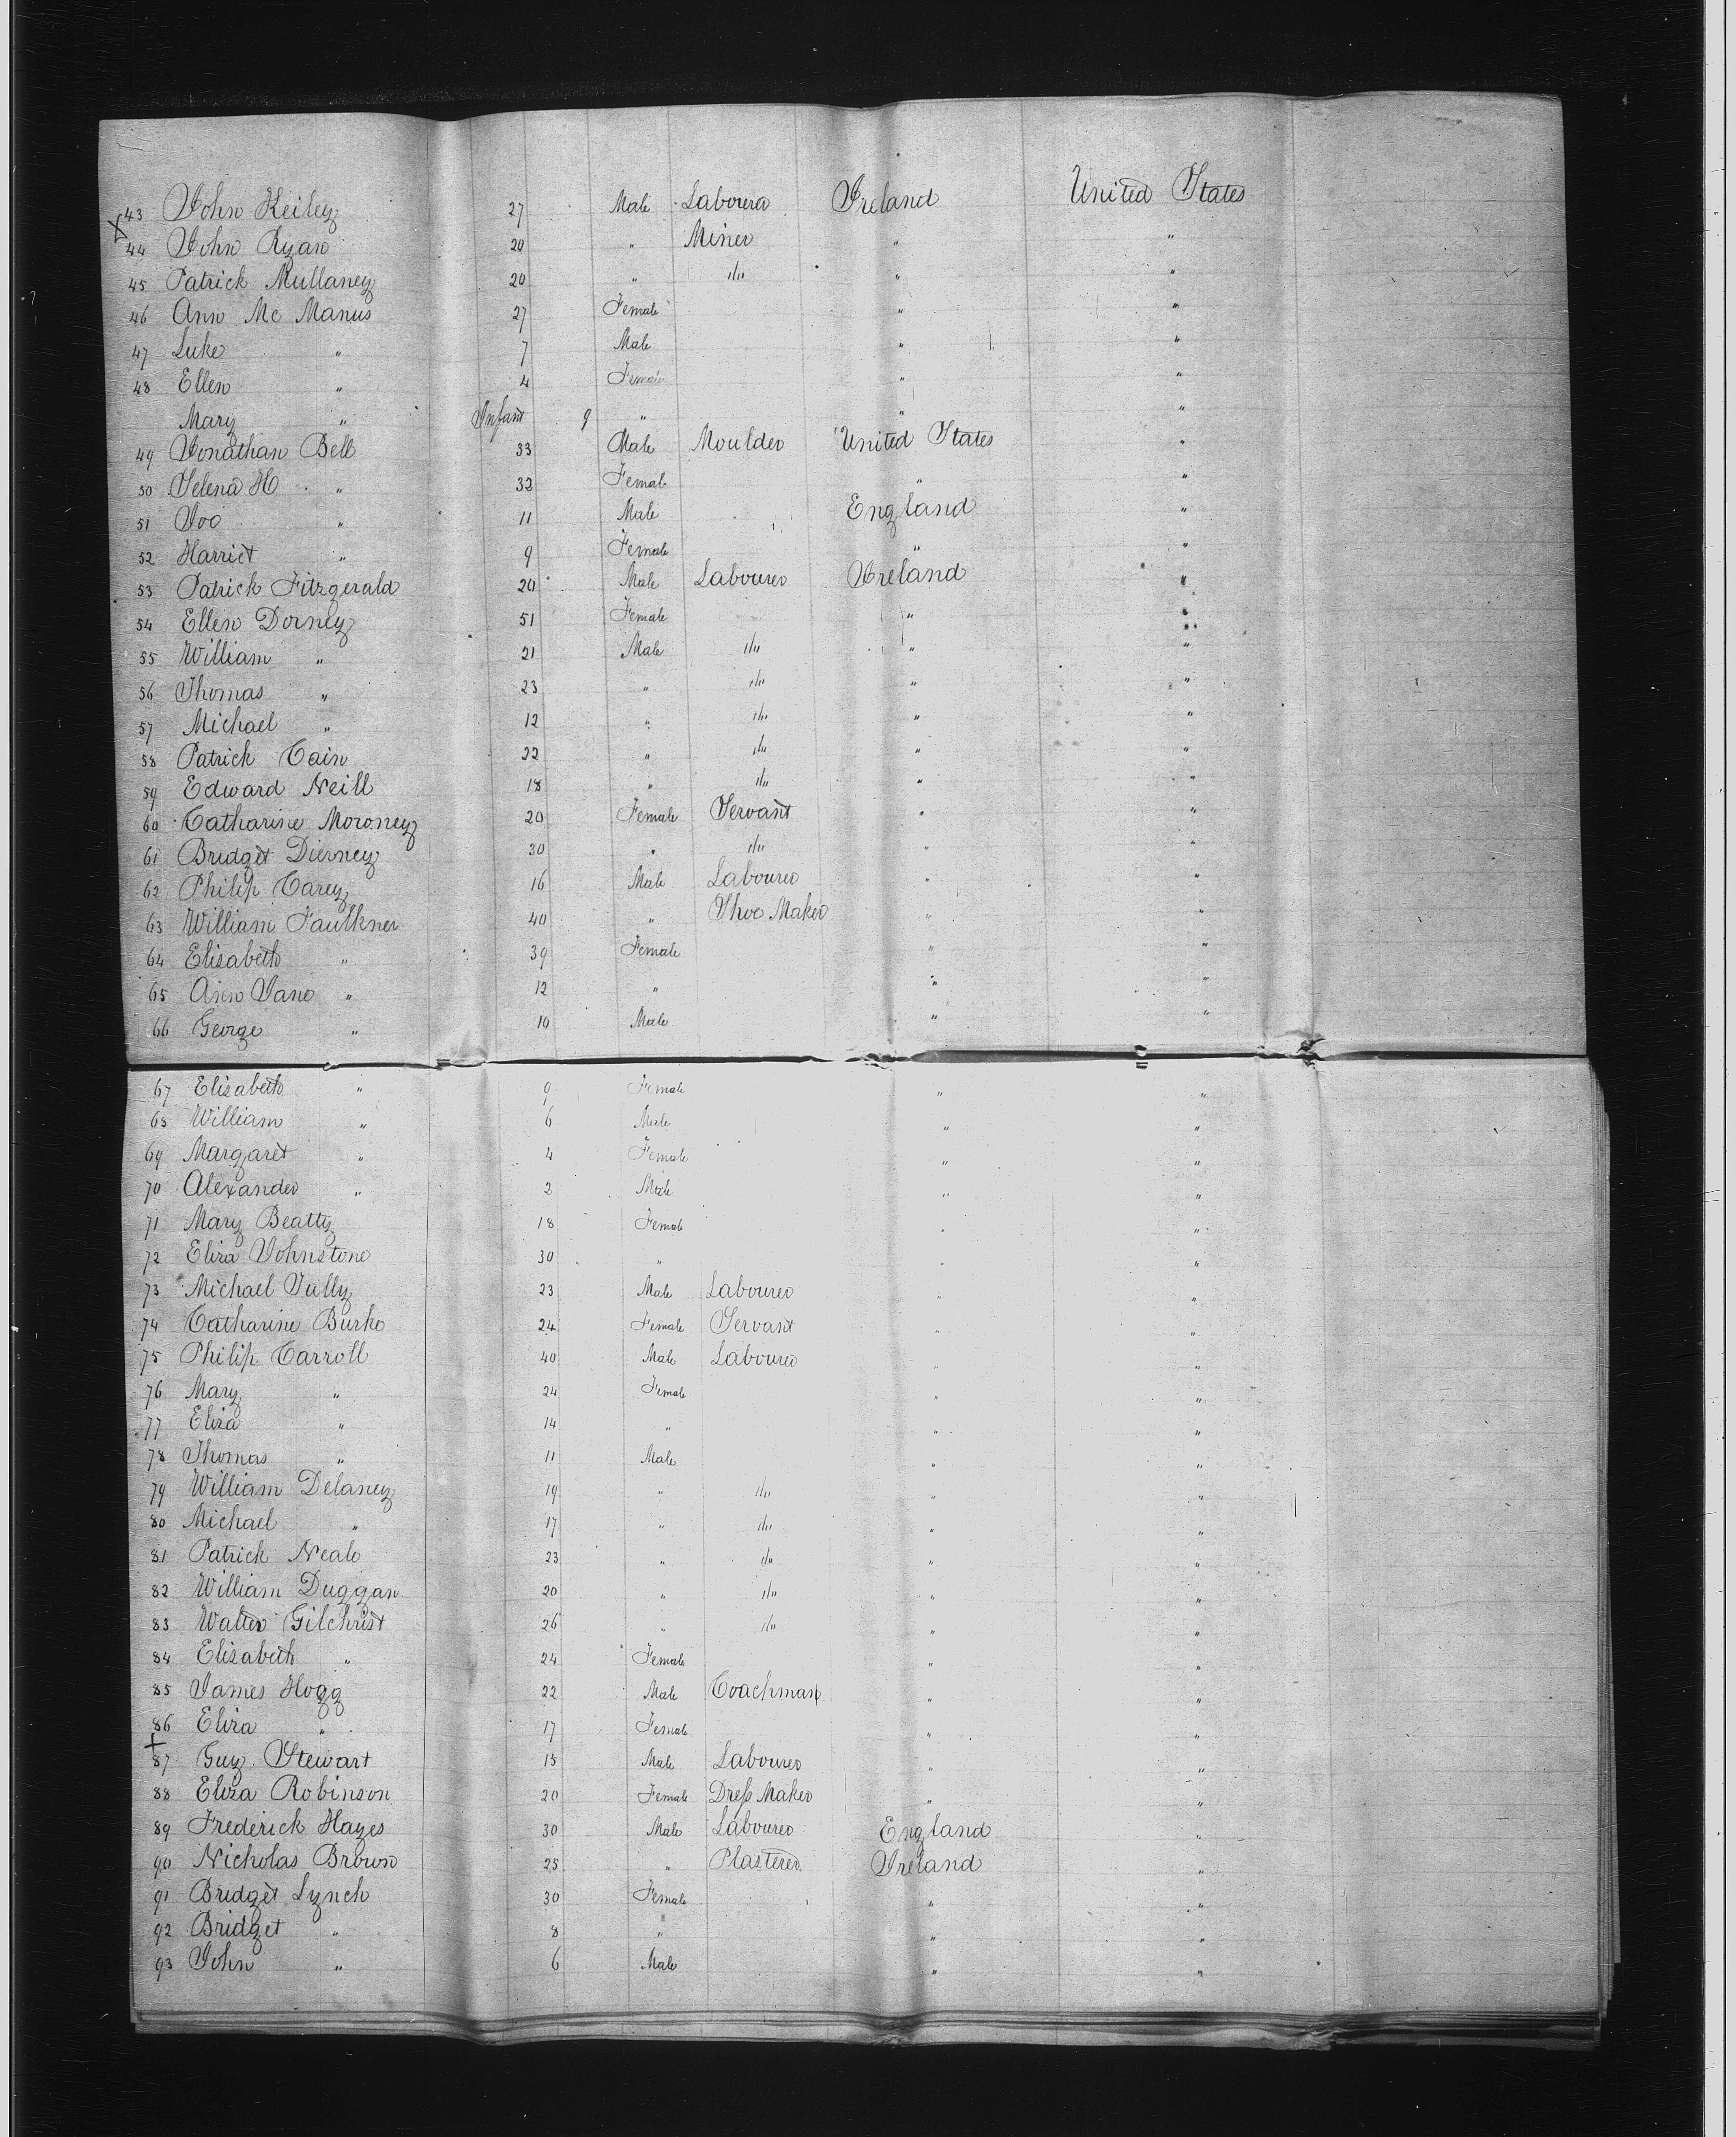 43 John Keiley 27 Male Labourer Ireland United States
X
44 John Ryan 20 " Miner " "
45 Patrick Mullaney 20 " " " "
46 Ann Mc Manus 27 Female " "
47 Luke " 7 Male " "
48 Ellen " 4 Female " "
Mary " Infant 9 " " "
49 Jonathan Bell 33 Male Moulder United States "
50 Selena H " 32 Female " "
51 Joe " 11 Male England "
52 Harriet " 9 Female " "
53 Patrick Fitzgerald 20 Male Labourer Ireland "
54 Ellen Dorney 51 Female " "
55 William " 21 Male " " "
56 Thomas " 23 " " " "
57 Michael " 12 " " " "
58 Patrick Cain 22 " " " "
59 Edward Neill 18 " " " "
60 Catharine Moroney 20 Female Servant " "
61 Bridget Dierney 30 " " " "
62 Philip Carey 16 Male Labourer " "
63 William Faulkner 40 " Shoe Maker " "
64 Elisabeth " 39 Female " "
65 Ann Jane " 12 " " "
66 George " 10 Male " "
67 Elisabeth " 9 Female " "
68 William " 6 Male " "
69 Margaret " 4 Female " "
70 Alexander " 2 Male " "
71 Mary Beatty 18 Female " "
72 Eliza Johnstone 30 " " "
73 Michael Tully 23 Male Labourer " "
74 Catharine Burke 24 Female Servant " "
75 Philip Carroll 40 Male Labourer " "
76 Mary " 24 Female " "
77 Eliza " 14 " " "
78 Thomas " 11 Male " "
79 William Delaney 19 " " " "
80 Michael " 17 " " " "
81 Patrick Neale 23 " " " "
82 William Duggan 20 " " " "
83 Walter Gilchrist 26 " " " "
84 Elisabeth " 24 Female " "
85 James Hogg 22 Male Coachman " "
86 Eliza " 17 Female " "
+
87 Guy Stewart 15 Male Labourer " "
88 Eliza Robinson 20 Female Dress Maker " "
89 Frederick Hayes 30 Male Labourer England "
90 Nicholas Brown 25 " Plasterer Ireland "
91 Bridget Lynch 30 Female " "
92 Bridget " 8 " " "
93 John " 6 Male " "